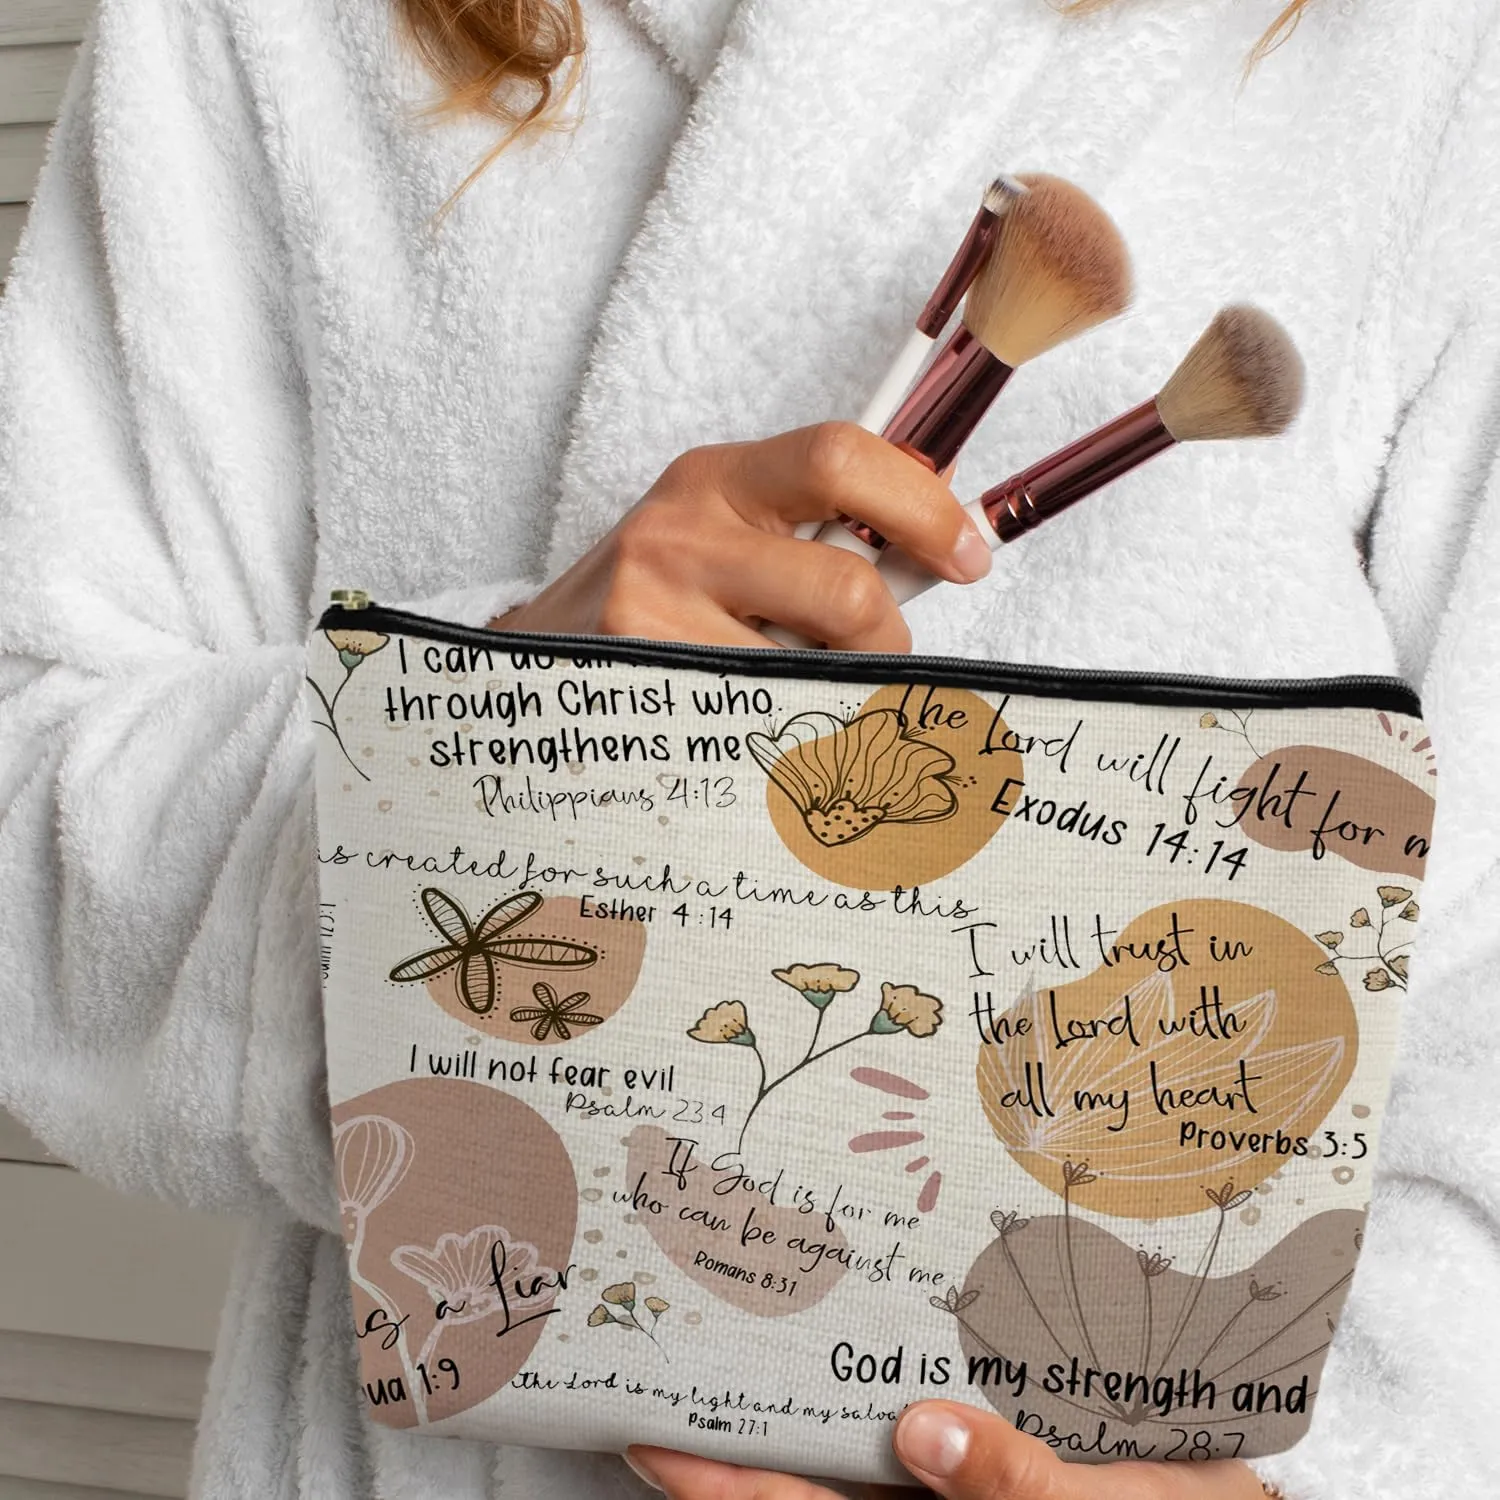 I can do all
through Christ who
strengthens me
Philippians 4:13
The Lord will fight for m
Exodus 14:14
as created for such a time as this
Esther 4:14
I will trust in
the Lord with
all my heart
Proverbs 3:5
I will not fear evil
Psalm 23 4
If God is for me
who can be against me
Romans 8:31
is a Liar
ua 1:9
the Lord is my light and my salva
Psalm 27:1
God is my strength and
Psalm 28:7